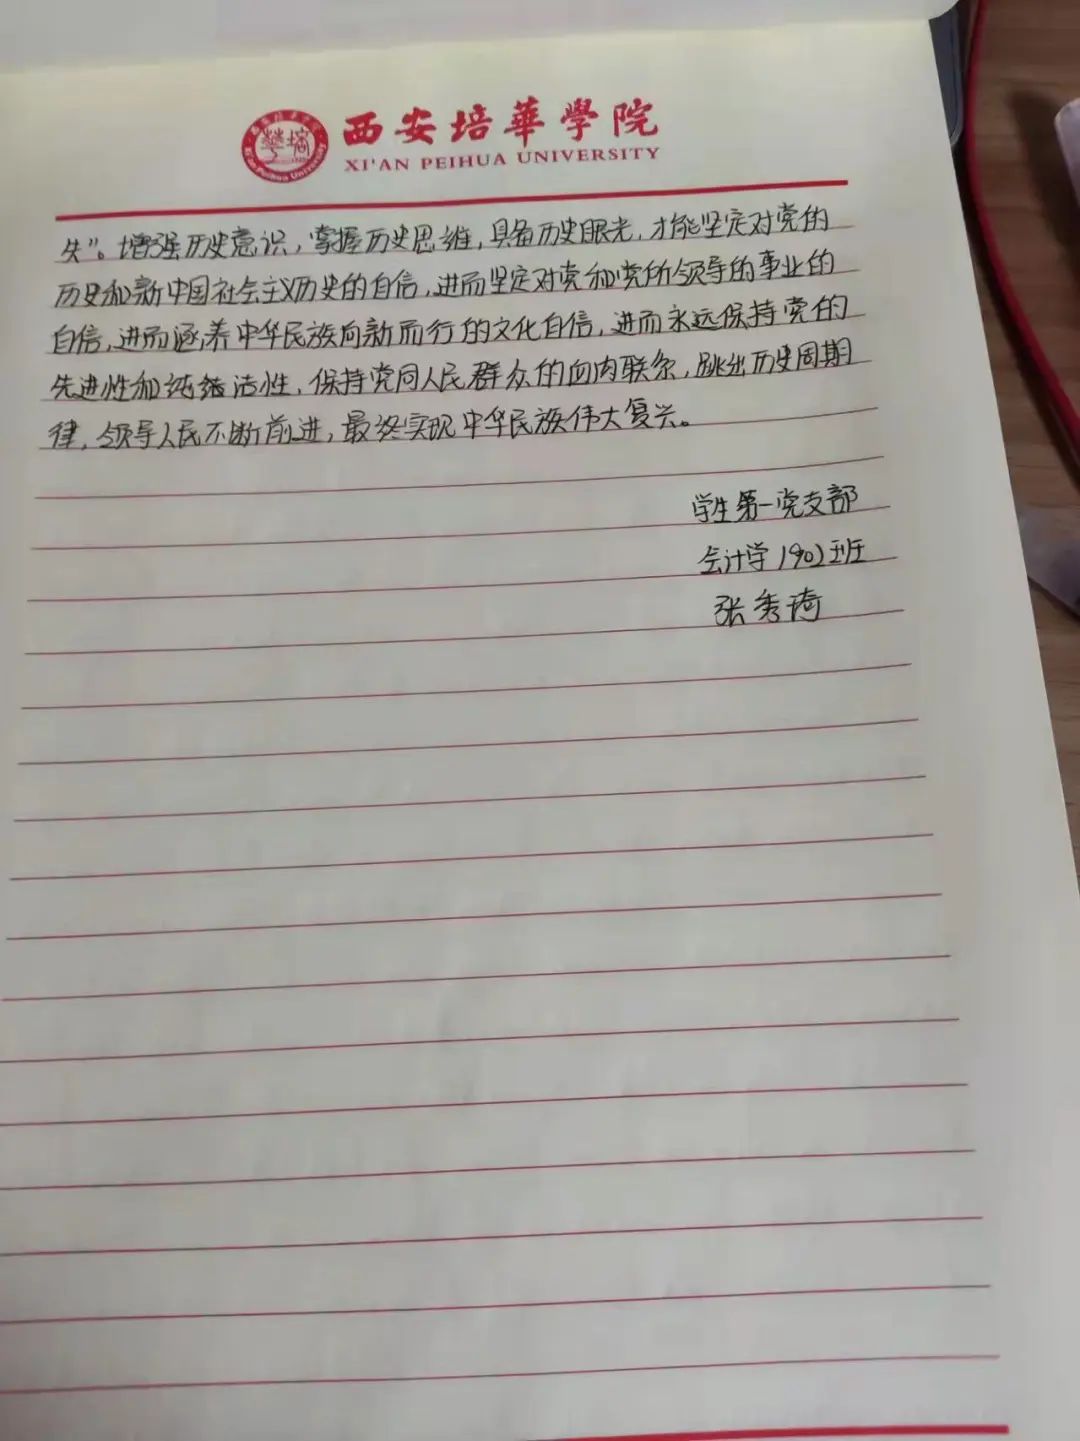 西安培華學院
XI'AN PEIHUA UNIVERSITY
失”。增强历史意识，掌握历史思维，具备历史眼光，才能坚定对党的
历史和新中国社会主义历史的自信，进而坚定对党和党所领导的事业的
自信，进而涵养中华民族向新而行的文化自信，进而永远保持党的
先进性和纯洁性，保持党同人民群众的血肉联系，跳出历史周期
律，领导人民不断前进，最终实现中华民族伟大复兴。
学生第一党支部
会计学1902班
张秀琦